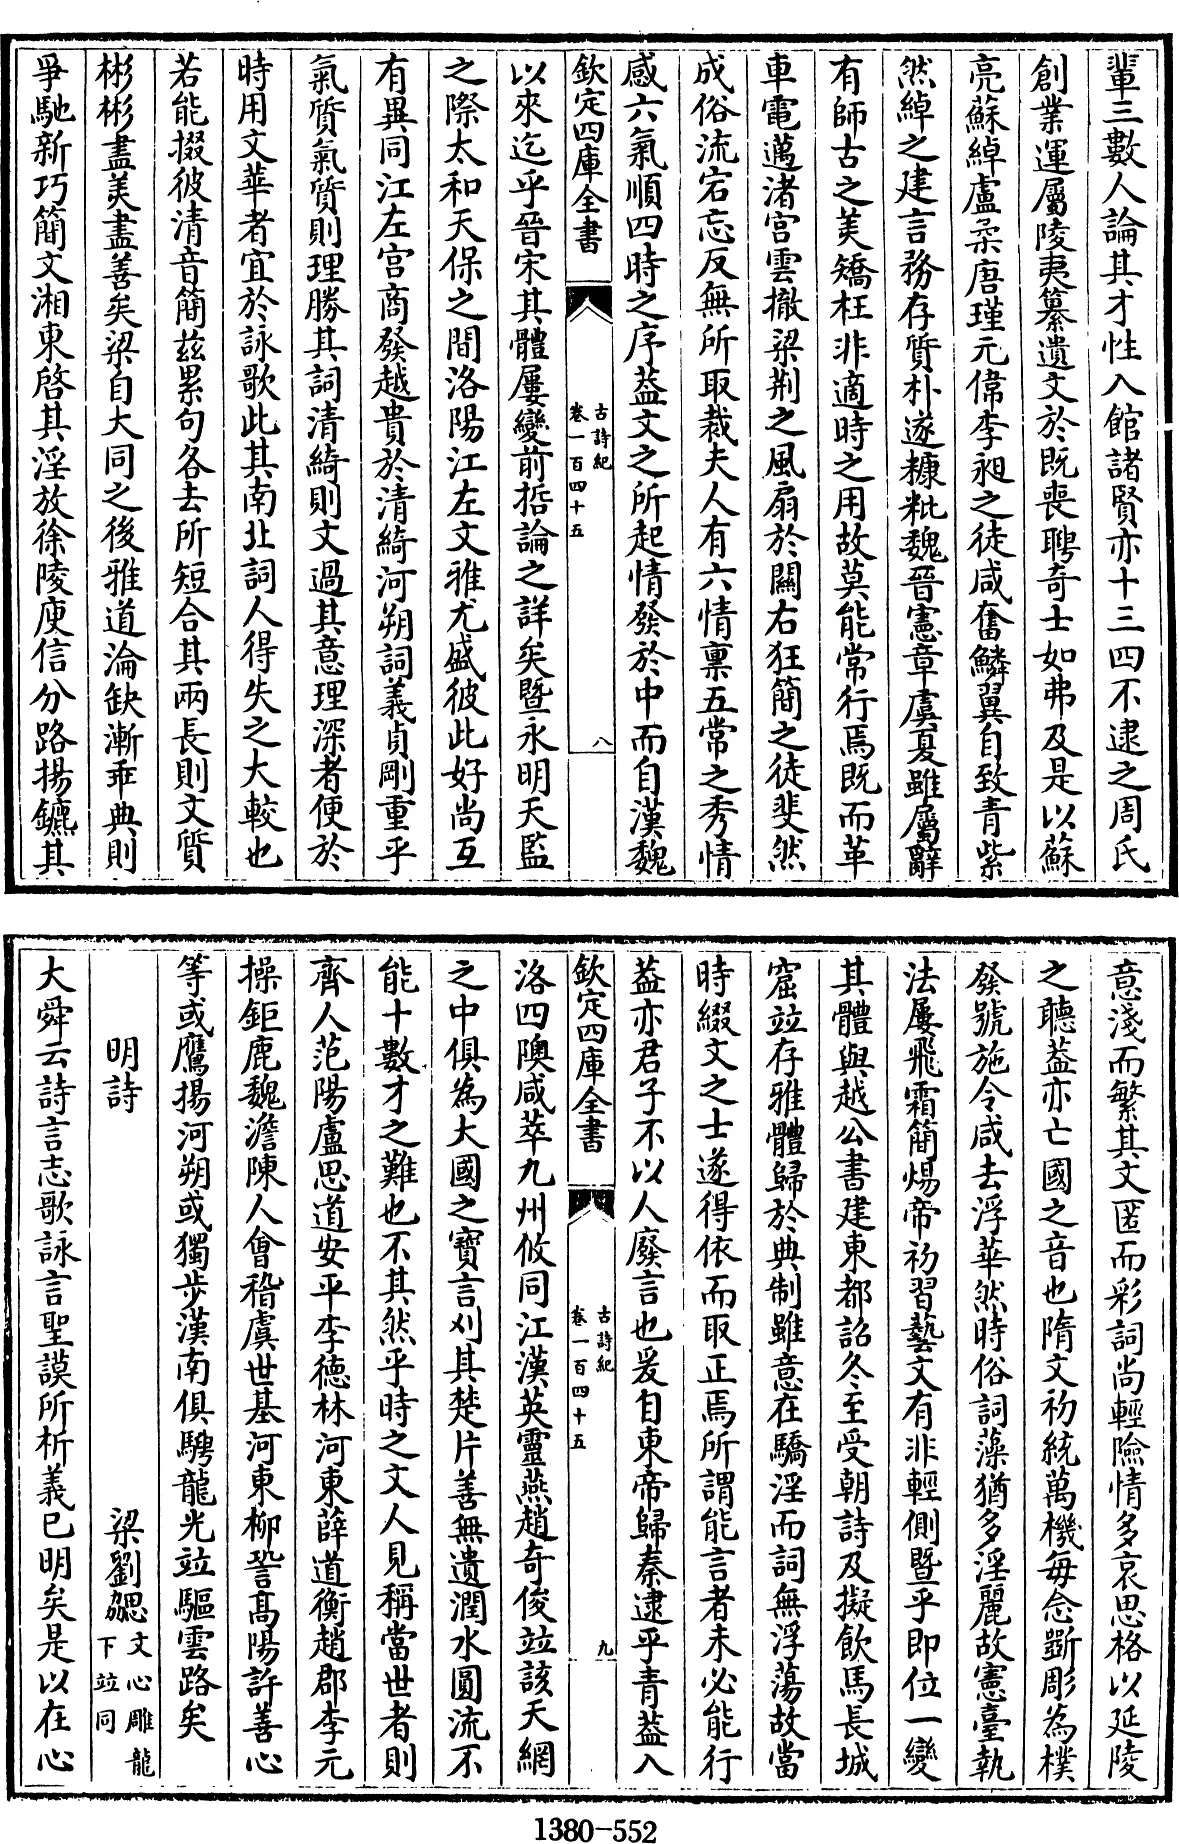 輩三數人論其才性入館諸賢亦十三四不逮之周氏
創業運屬陵夷纂遺文於既喪聘奇士如弗及是以蘇
亮蘇綽盧柔唐瑾元偉李昶之徒咸奮鱗翼自致青紫
然綽之建言務存質朴遂糠粃魏晉憲章虞夏雖屬辭
有師古之美矯枉非適時之用故莫能常行焉既而革
車電邁渚宮雲撤梁荆之風扇於關右狂簡之徒斐然
成俗流宕忘反無所取裁夫人有六情禀五常之秀情
感六氣順四時之序葢文之所起情發於中而自漢魏
欽定四庫全書
古詩紀
卷一百四十五
八
以來迄乎晉宋其體屢變前哲論之詳矣暨永明天監
之際太和天保之間洛陽江左文雅尤盛彼此好尚互
有異同江左宮商發越貴於清綺河朔詞義貞剛重乎
氣質氣質則理勝其詞清綺則文過其意理深者便於
時用文華者宜於詠歌此其南北詞人得失之大較也
若能掇彼清音簡兹累句各去所短合其兩長則文質
彬彬盡美盡善矣梁自大同之後雅道淪缺漸乖典則
爭馳新巧簡文湘東啓其淫放徐陵庾信分路揚鑣其
意淺而繁其文匿而彩詞尚輕險情多哀思格以延陵
之聽葢亦亡國之音也隋文初統萬機每念斲彫為樸
發號施令咸去浮華然時俗詞藻猶多淫麗故憲臺執
法屢飛霜簡煬帝初習藝文有非輕側暨乎即位一變
其體與越公書建東都詔冬至受朝詩及擬飲馬長城
窟竝存雅體歸於典制雖意在驕淫而詞無浮蕩故當
時綴文之士遂得依而取正焉所謂能言者未必能行
葢亦君子不以人廢言也爰自東帝歸秦逮乎青葢入
欽定四庫全書
古詩紀
卷一百四十五
九
洛四隩咸萃九州攸同江漢英靈燕趙奇俊竝該天網
之中俱為大國之寶言刈其楚片善無遺潤水圓流不
能十數才之難也不其然乎時之文人見稱當世者則
齊人范陽盧思道安平李德林河東薛道衡趙郡李元
操鉅鹿魏澹陳人會稽虞世基河東柳䛒高陽許善心
等或鷹揚河朔或獨步漢南俱騁龍光竝驅雲路矣
明詩 梁劉勰 文心雕龍
下竝同
大舜云詩言志歌詠言聖謨所析義已明矣是以在心
1380-552